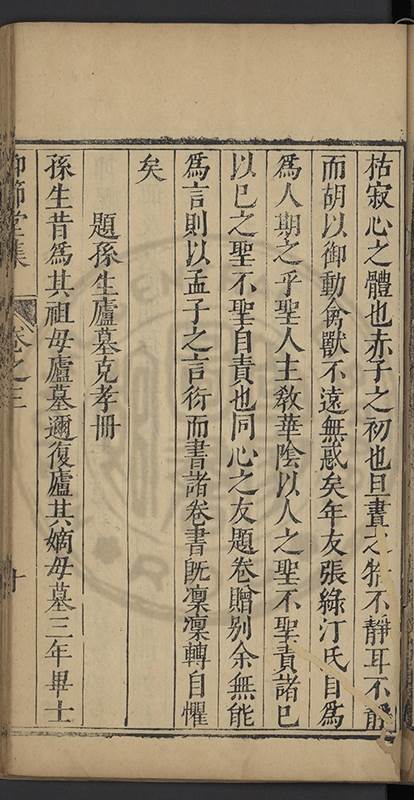 枯寂心之體也赤子之初也旦晝之牿不靜耳不能
而胡以御動禽獸不遠無惑矣年友張綠汀氏目爲
爲人期之乎聖人主敎華陰以人之聖不聖責諸已
以巳之聖不聖自責也同心之友題卷贈别余無能
爲言則以孟子之言衍而書諸卷書旣凛凛轉自懼
矣
題孫生廬墓克孝冊
孫生昔爲其祖母廬墓邇復廬其嫡母墓三年畢士
仰節堂集
卷之三
十